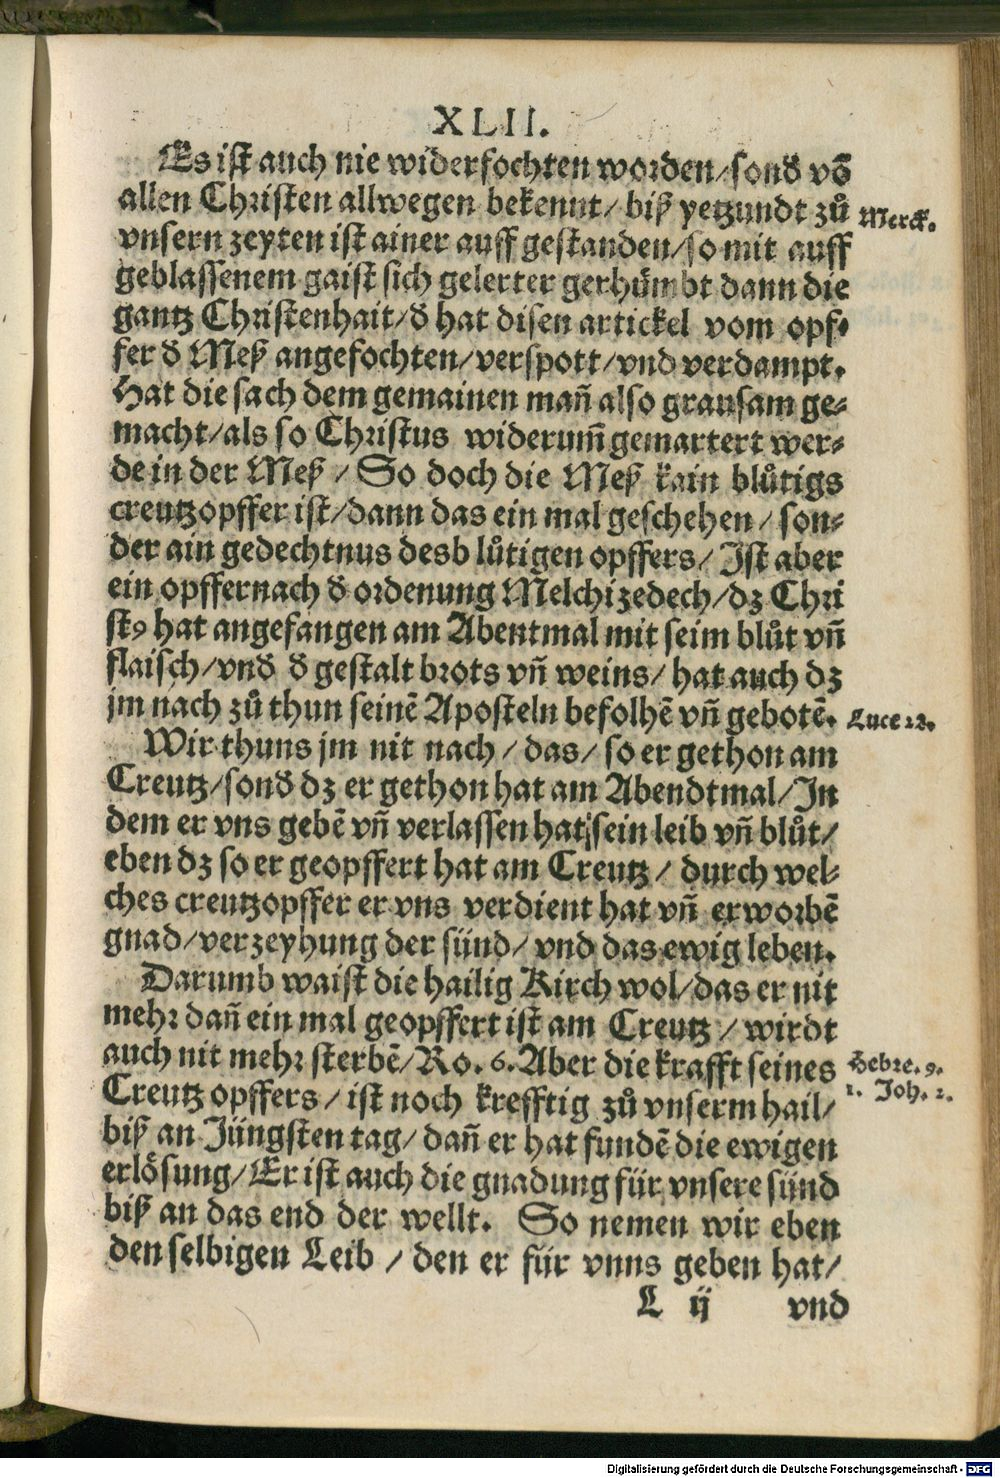 XLII.
Es ist auch nie widerfochten worden/sond̕ võ
allen Christen allwegen bekennt/ biß yetzundt zů
Merck.
vnsern zeyten ist ainer auff gestanden/so mit auff
geblassenem gaist sich gelerter gerhümbt dann die
gantz Christenhait/d̕ hat disen artickel vom opf⸗
fer d̕ Meß angefochten/verspott/vnd verdampt.
Hat die sach dem gemainen mañ also grausam ge⸗
macht/als so Christus widerum̃ gemartert wer⸗
de in der Meß / So doch die Meß kain blůtigs
creutzopffer ist/dann das ein mal geschehen/ son⸗
der ain gedechtnus desb lůtigen opffers/ Ist aber
ein opffernach d̕ ordenung Melchizedech/dz Chri
stꝰ hat angefangen am Abentmal mit seim blůt vñ
flaisch/vnd̕ d̕ gestalt brots vñ weins/ hat auch dz
jm nach zů thun seinẽ Aposteln befolhẽ vñ gebotẽ.
Luce 22.
Wir thuns jm nit nach/ das/ so er gethon am
Creutz/sond̕ dz er gethon hat am Abendtmal/In
dem er vns gebẽ vñ verlassen hat/sein leib vñ blůt/
eben dz so er geopffert hat am Creutz/ durch wel⸗
ches creutzopffer er vns verdient hat vñ erworbẽ
gnad/verzeyhung der sünd/ vnd das ewig leben.
Darumb waist die hailig Kirch wol/das er nit
mehr dañ ein mal geopffert ist am Creutz / wirdt
auch nit mehr sterbẽ/Ro. 6. Aber die krafft seines
Hebre. 9.
Creutz opffers / ist noch krefftig zů vnserm hail/
1. Joh. 2.
biß an Jüngsten tag/ dañ er hat fundẽ die ewigen
erlösung/Er ist auch die gnadung für vnsere sünd
biß an das end der wellt. So nemen wir eben
den selbigen Leib / den er für vnns geben hat/
L ij vnd
Digitalisierung gefördert durch die Deutsche Forschungsgemeinschaft - DFG